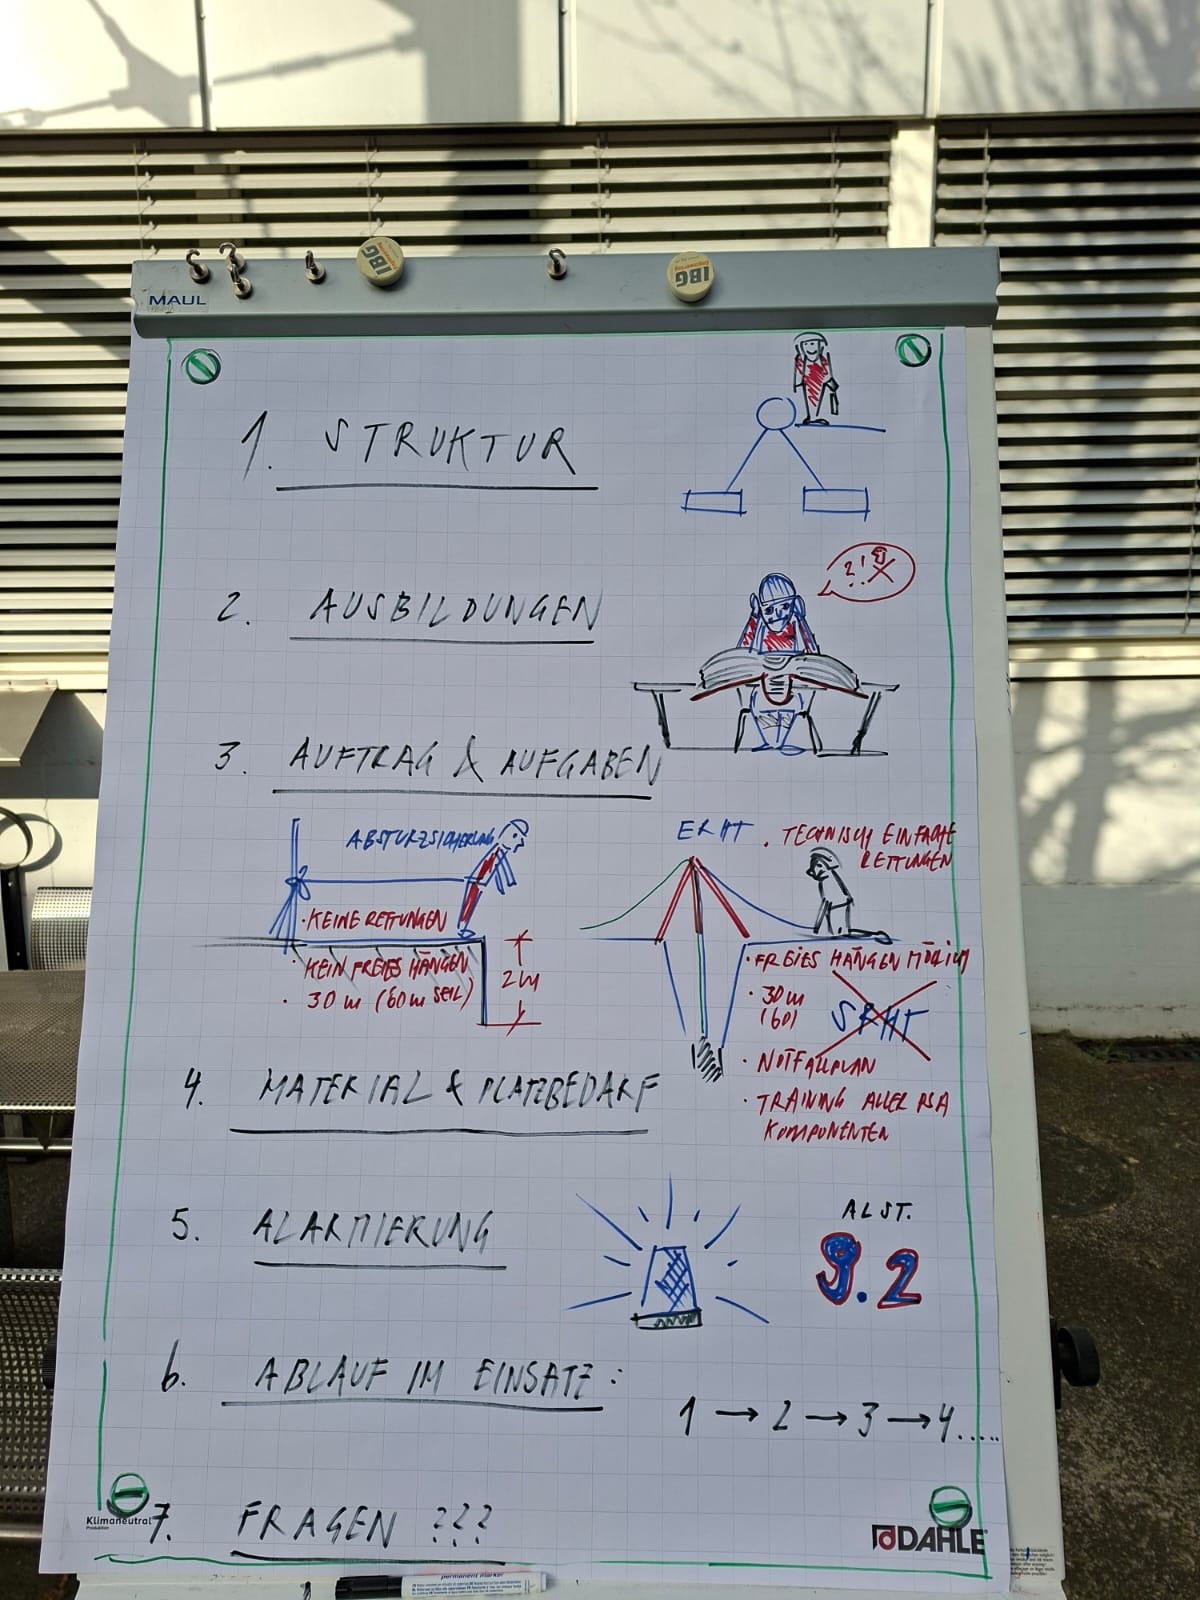 IBG
IBG
MAUL
1. STRUKTUR
2. AUSBILDUNGEN
?!
3. AUFTRAG & AUFGABEN
ABSTURZSICHERUNG
· KEINE RETTUNGEN
· KEIN FREIES HÄNGEN
· 30 m (60 m SEIL)
2 m
ERHT
· TECHNISCH EINFACHE
RETTUNGEN
· FREIES HÄNGEN MÖGLICH
· 30 m
(60)
SRHT
· NOTFALLPLAN
· TRAINING ALLER PSA
KOMPONENTEN
4. MATERIAL & PLATZBEDARF
5. ALARMIERUNG
ALST.
9.2
6. ABLAUF IM EINSATZ:
1 → 2 → 3 → 4.....
7. FRAGEN ???
Klimaneutral
Produktion
DAHLE
permanent marker